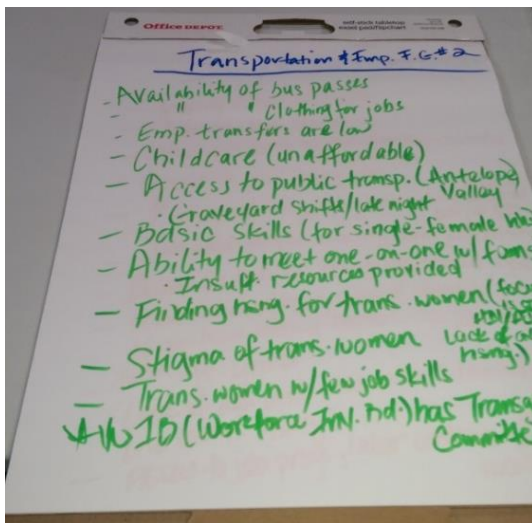 Office DEPOT
self-stick tabletop
easel pad/flipchart
Transportation & Emp. F.G. #2
- Availability of bus passes
- " " Clothing for jobs
- Emp. transfers are low
- Childcare (unaffordable)
- Access to public transp. (Antelope
Valley
· Graveyard shifts/late night
- Basic Skills (for single-female
- Ability to meet one-on-one w/
· Insuff. resources provided
- Finding hsng. for trans. women (focus
is
Lack of
hsng.)
- Stigma of trans. women
- Trans. women w/ few job skills
(Workforce Inv. Bd.) has